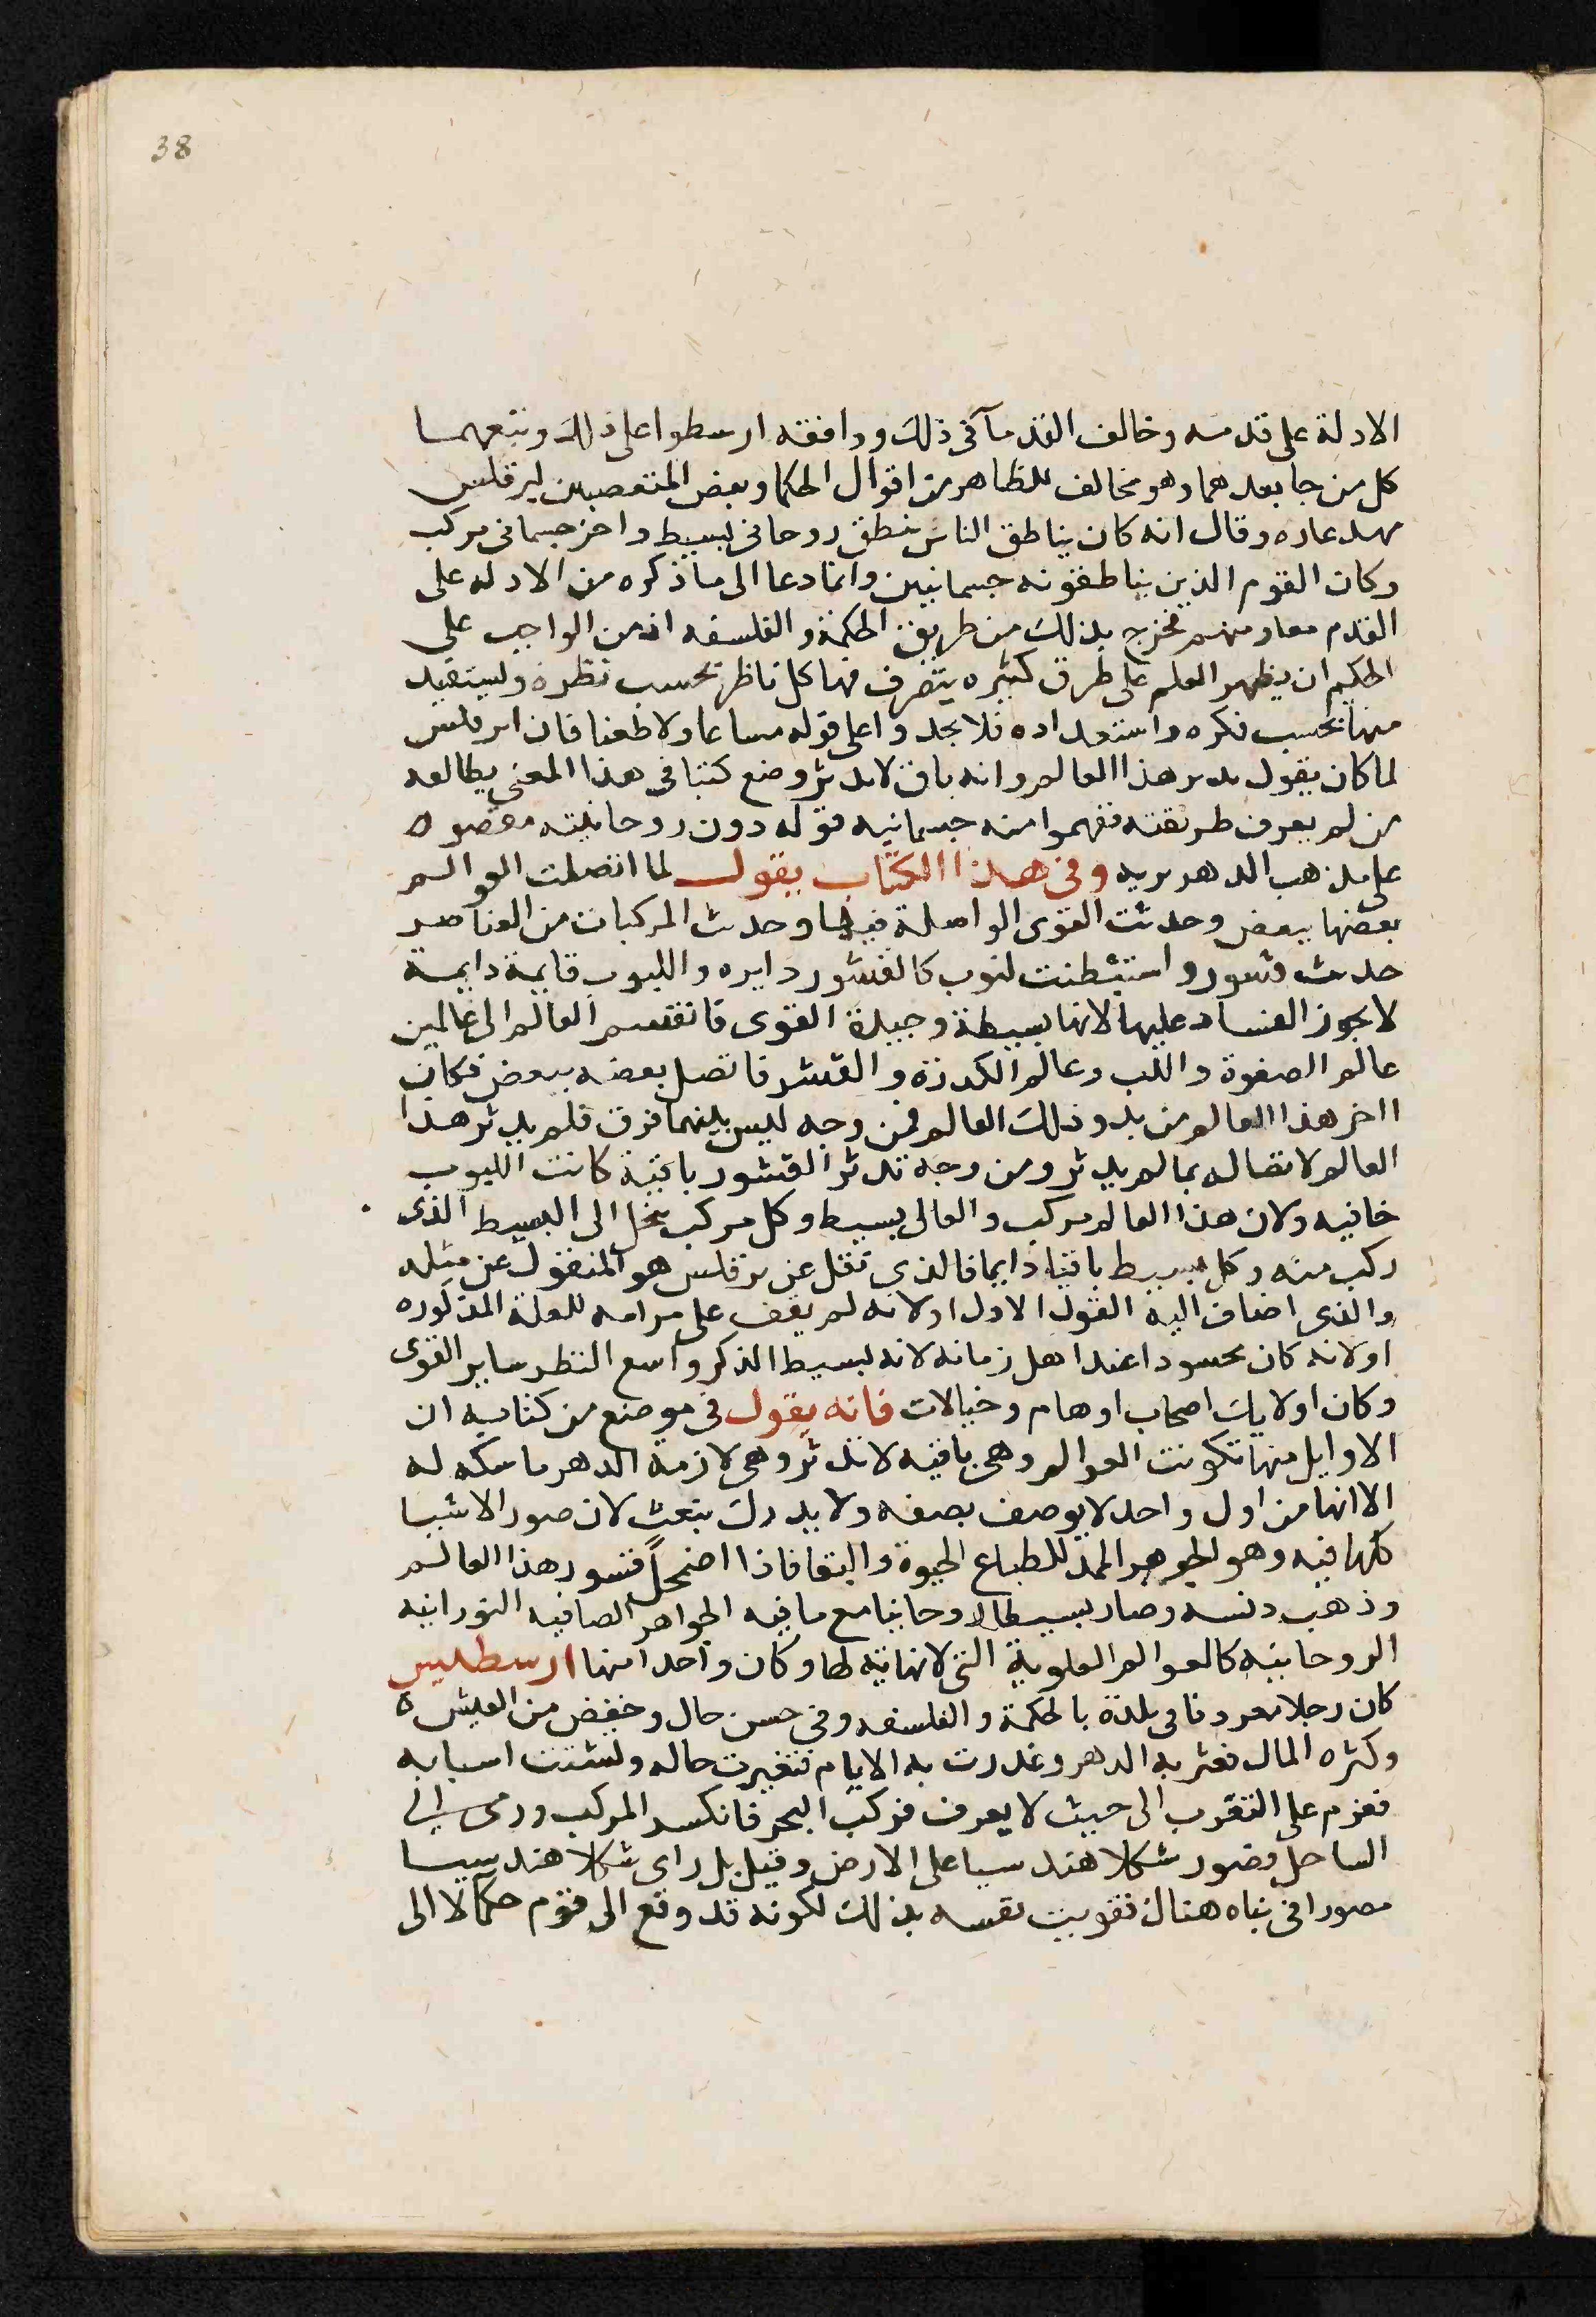 38
الادلة على قدمه وخالف القدمآ فى ذلك ووافقه ارسطوا على ذلك وتبعهما
كل من جا بعدهما وهو مخالف للظاهر من اقوال الحكما وبعض المتعصبين لبرقلس
مهد عذره وقال انه كان يناطق الناس بنطق روحانى بسيط واخر جسمانى مركب
وكان القوم الذين يناطقونه جسمانيين وانما دعا الى ما ذكره من الادله على
القدم فخرج بذلك من طريق الحكمة والفلسفه اذ من الواجب على
الحكيم ان يظهر العلم على طرق كثيره يتصرف فيها كل ناظر بحسب نظره وليستفيد
منها بحسب فكره واستعداده فلا يجدوا على قوله مساغا ولا طعنا فان ابرقلس
لما كان يقول بدهر هذا العالم وانه باق لا يدثر وضع كتبا فى هذا المعنى يطالعه
من لم يعرف طريقته ففهموا منه جسمانيه قوله دون روحانيته
على مذهب الدهريه وفى هذا الكتاب يقول لما اتصلت العوالم
بعضها ببعض وحدثت القوى الواصلة فيها وحدث المركبات من العناصر
حدث قشور واستبطنت لبوب كالقشور دايره واللبوب قايمة دايمة
لا يجوز الفساد عليها لانها بسيطة وحيدة القوى فانقسم العالم الى عالمين
عالم الصفوة واللب وعالم الكدرة والقشر فاتصل بعضه ببعض فكان
ااخر هذا العالم من بدو ذلك العالم فمن وجه ليس بينهما فرق فلم يدثر هذا
العالم لاتصاله بما لم يدثر ومن وجه تدثر القشور باقية كانت اللبوب
خافيه ولان هذا العالم مركب والعالى بسيط وكل مركب ينحل الى البسيط الذى
ركب منه وكل بسيط باقيا دايما فالذى نقل عن برقلس هو المنقول عن مثله
والذى اضاف اليه القول الاول اولانه لم يقف على مرامه للعلة المذكوره
اولانه كان محسودا عند اهل زمانه لانه بسيط الذكر واسع النظر ساير القوى
وكان اولايك اصحاب اوهام وخيالات فانه يقول فى موضع من كتابه ان
الاوايل منها تكونت العوالم وهى باقيه لا تدثر وهى لازمة الدهر ماسكه له
الا انها من اول واحد لا يوصف بصفه ولا يدرك بنعت لان صور الاشيا
كلها فيه وهو الجوهر الممد للطباع الحيوة والبقا فاذا اضمحلً قشور هذا العالم
وذهب دنسه وصار بسيطا روحانيا مع ما فيه الجواهر الصافيه النورانيه
الروحانيه كالعوالم العلوية التى لا نهاية لها وكان واحدا منها ارسطلبس
كان رجلا معروفا فى بلدة بالحكمة والفلسفه وفى حسن حال وخفض من العيش ه
وكثره المال فعثر به الدهر وغدرت به الايام فتغيرت حاله وتشتت اسبابه
فعزم على التقرب الى حيث لا يعرف فركب البحر فانكسر المركب ورمى الى
الساحل فصور شكلا هندسيا على الارض وقيل بل راى شكلا هندسيا
مصورا فى بناه هناك فقويت نفسه بذلك لكونه قد وقع الى قوم حكما لا الى